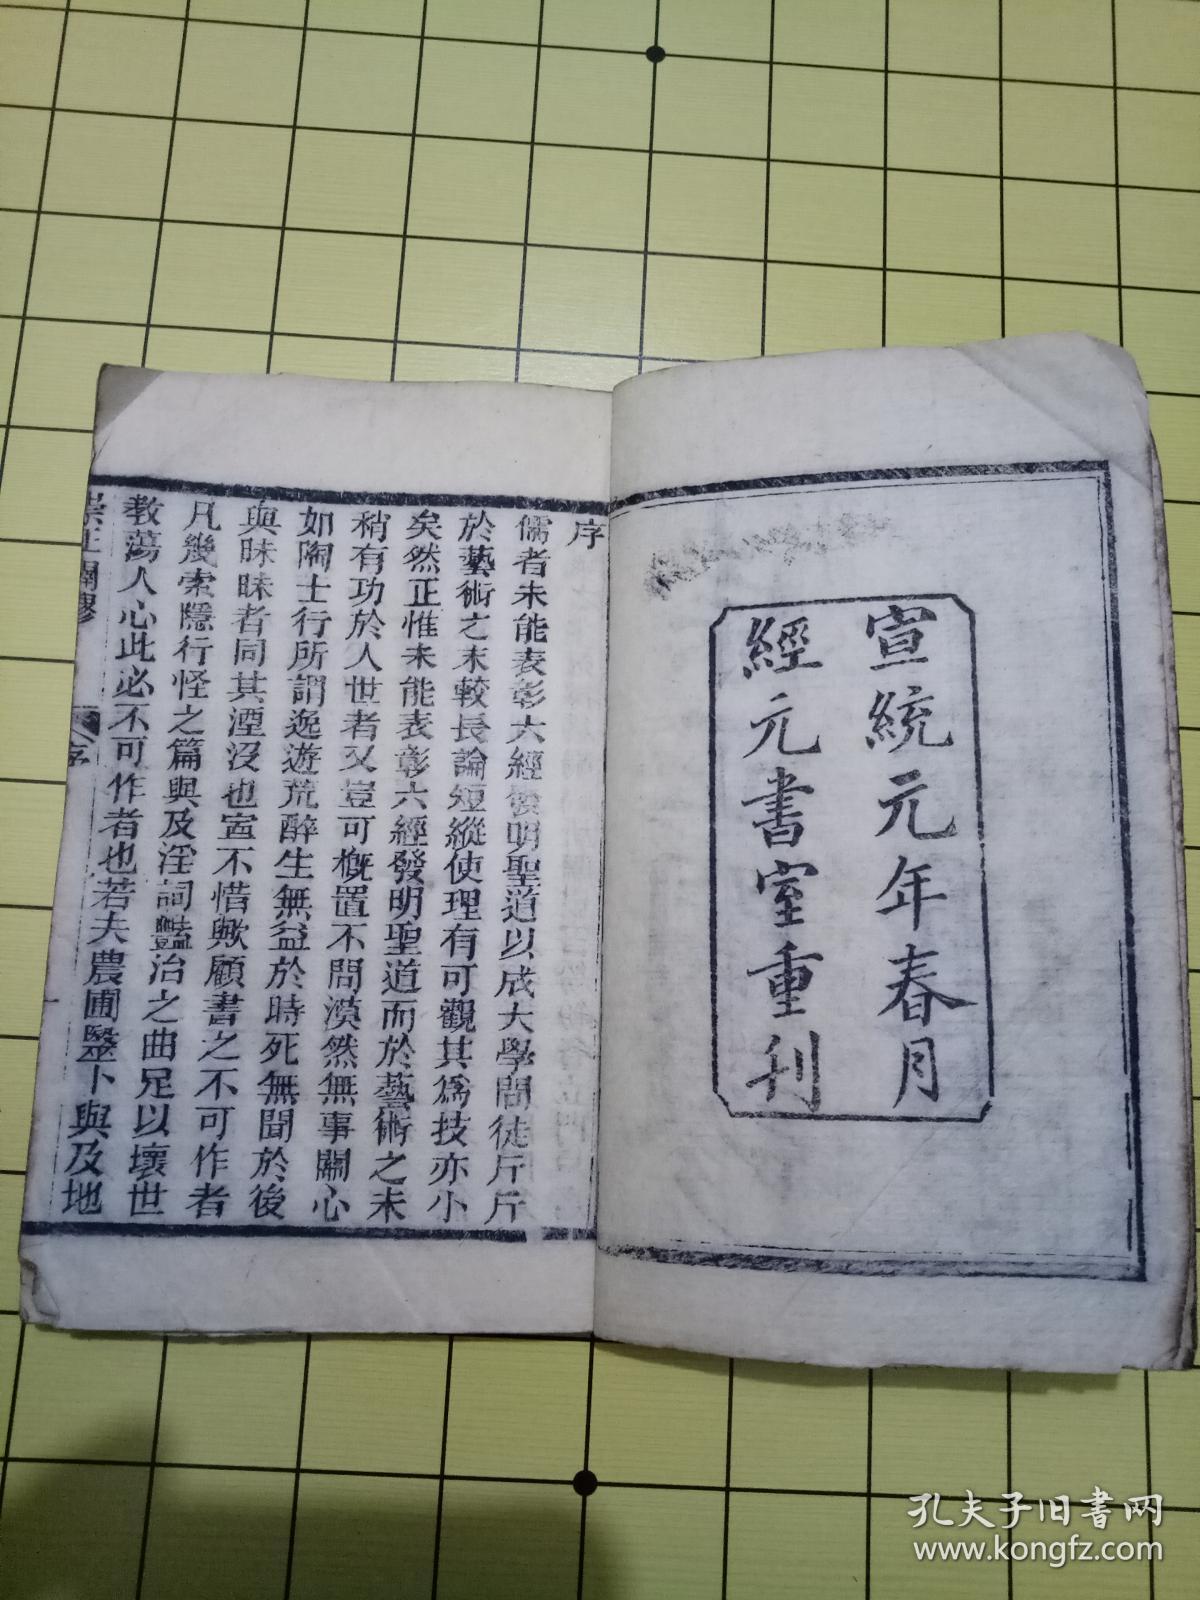 宣統元年春月
經元書室重刊
序
儒者未能表彰六經發明聖道以成大學問徒斤斤
於藝術之末較長論短縱使理有可觀其爲技亦小
矣然正惟未能表彰六經發明聖道而於藝術之末
稍有功於人世者又豈可概置不問漠然無事關心
如陶士行所謂逸遊荒醉生無益於時死無聞於後
與昧昧者同其湮沒也寍不惜歟顧書之不可作者
凡幾索隱行怪之篇與及淫詞豔冶之曲足以壞世
教蕩人心此必不可作者也若夫農圃醫卜與及地
崇正闢謬
序
一
孔夫子旧书网
www.kongfz.com